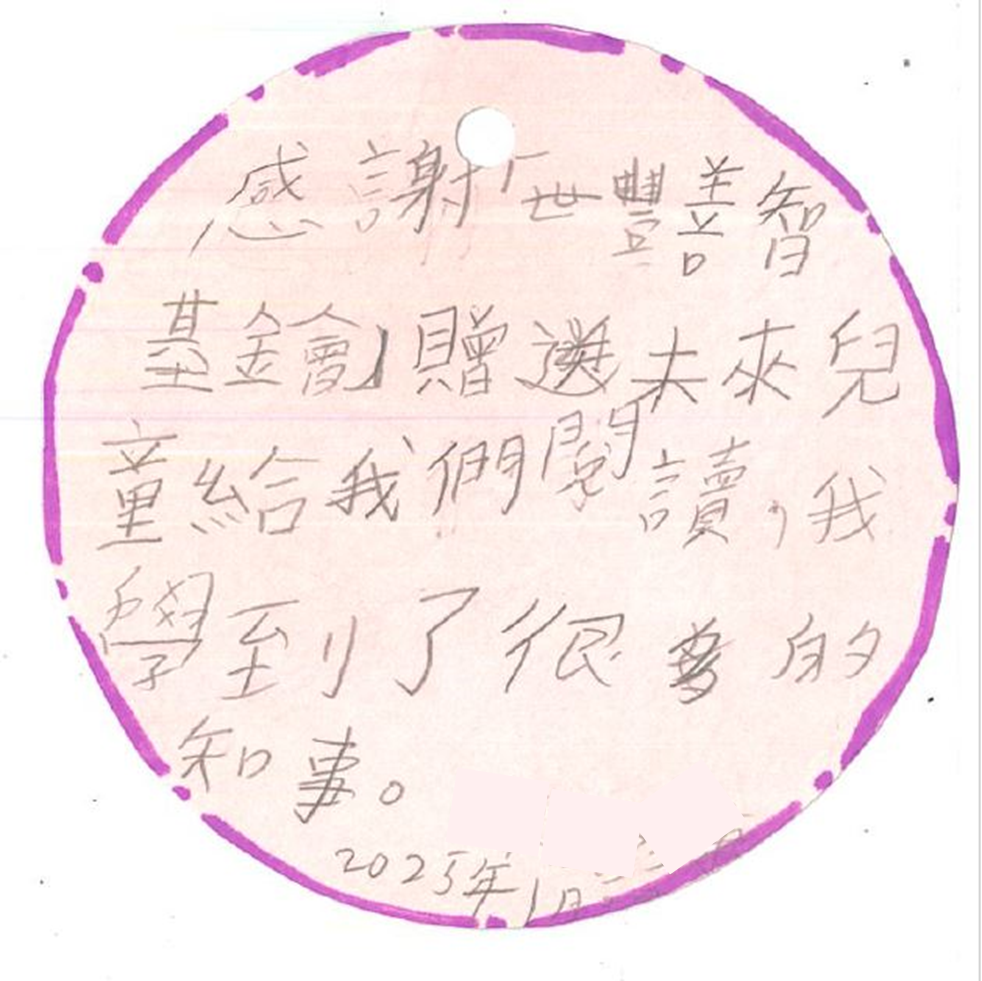 感謝「世豐善智
基金會」贈選未來兒
童給我們閱讀,我
學到了很多的
知事。
2025年1月